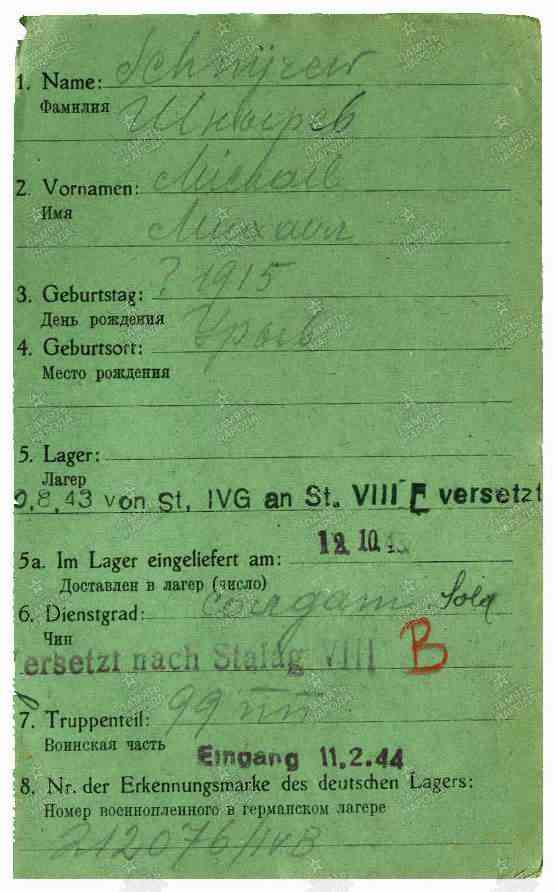 1. Name: Schnyrew
Фамилия Шнырев
2. Vornamen: Michail
Имя Михаил
3. Geburtstag: ? 1915
День рождения
4. Geburtsort:
Место рождения
5. Lager:
Лагер
0.8.43 von St. IVG an St. VIII E versetzt
5a. Im Lager eingeliefert am: 12. 10. 43
Доставлен в лагер (число)
6. Dienstgrad: солдат Sold
Чин
Versetzt nach Stalag VIII B
7. Truppenteil: 99
Воинская часть
Eingang 11.2.44
8. Nr. der Erkennungsmarke des deutschen Lagers:
Номер военнопленного в германском лагере
212076/IVB